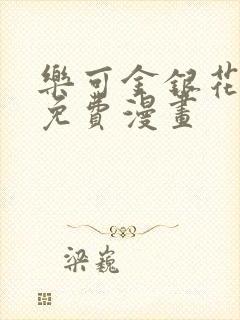 樂可金銀花
免費漫畫
梁巍